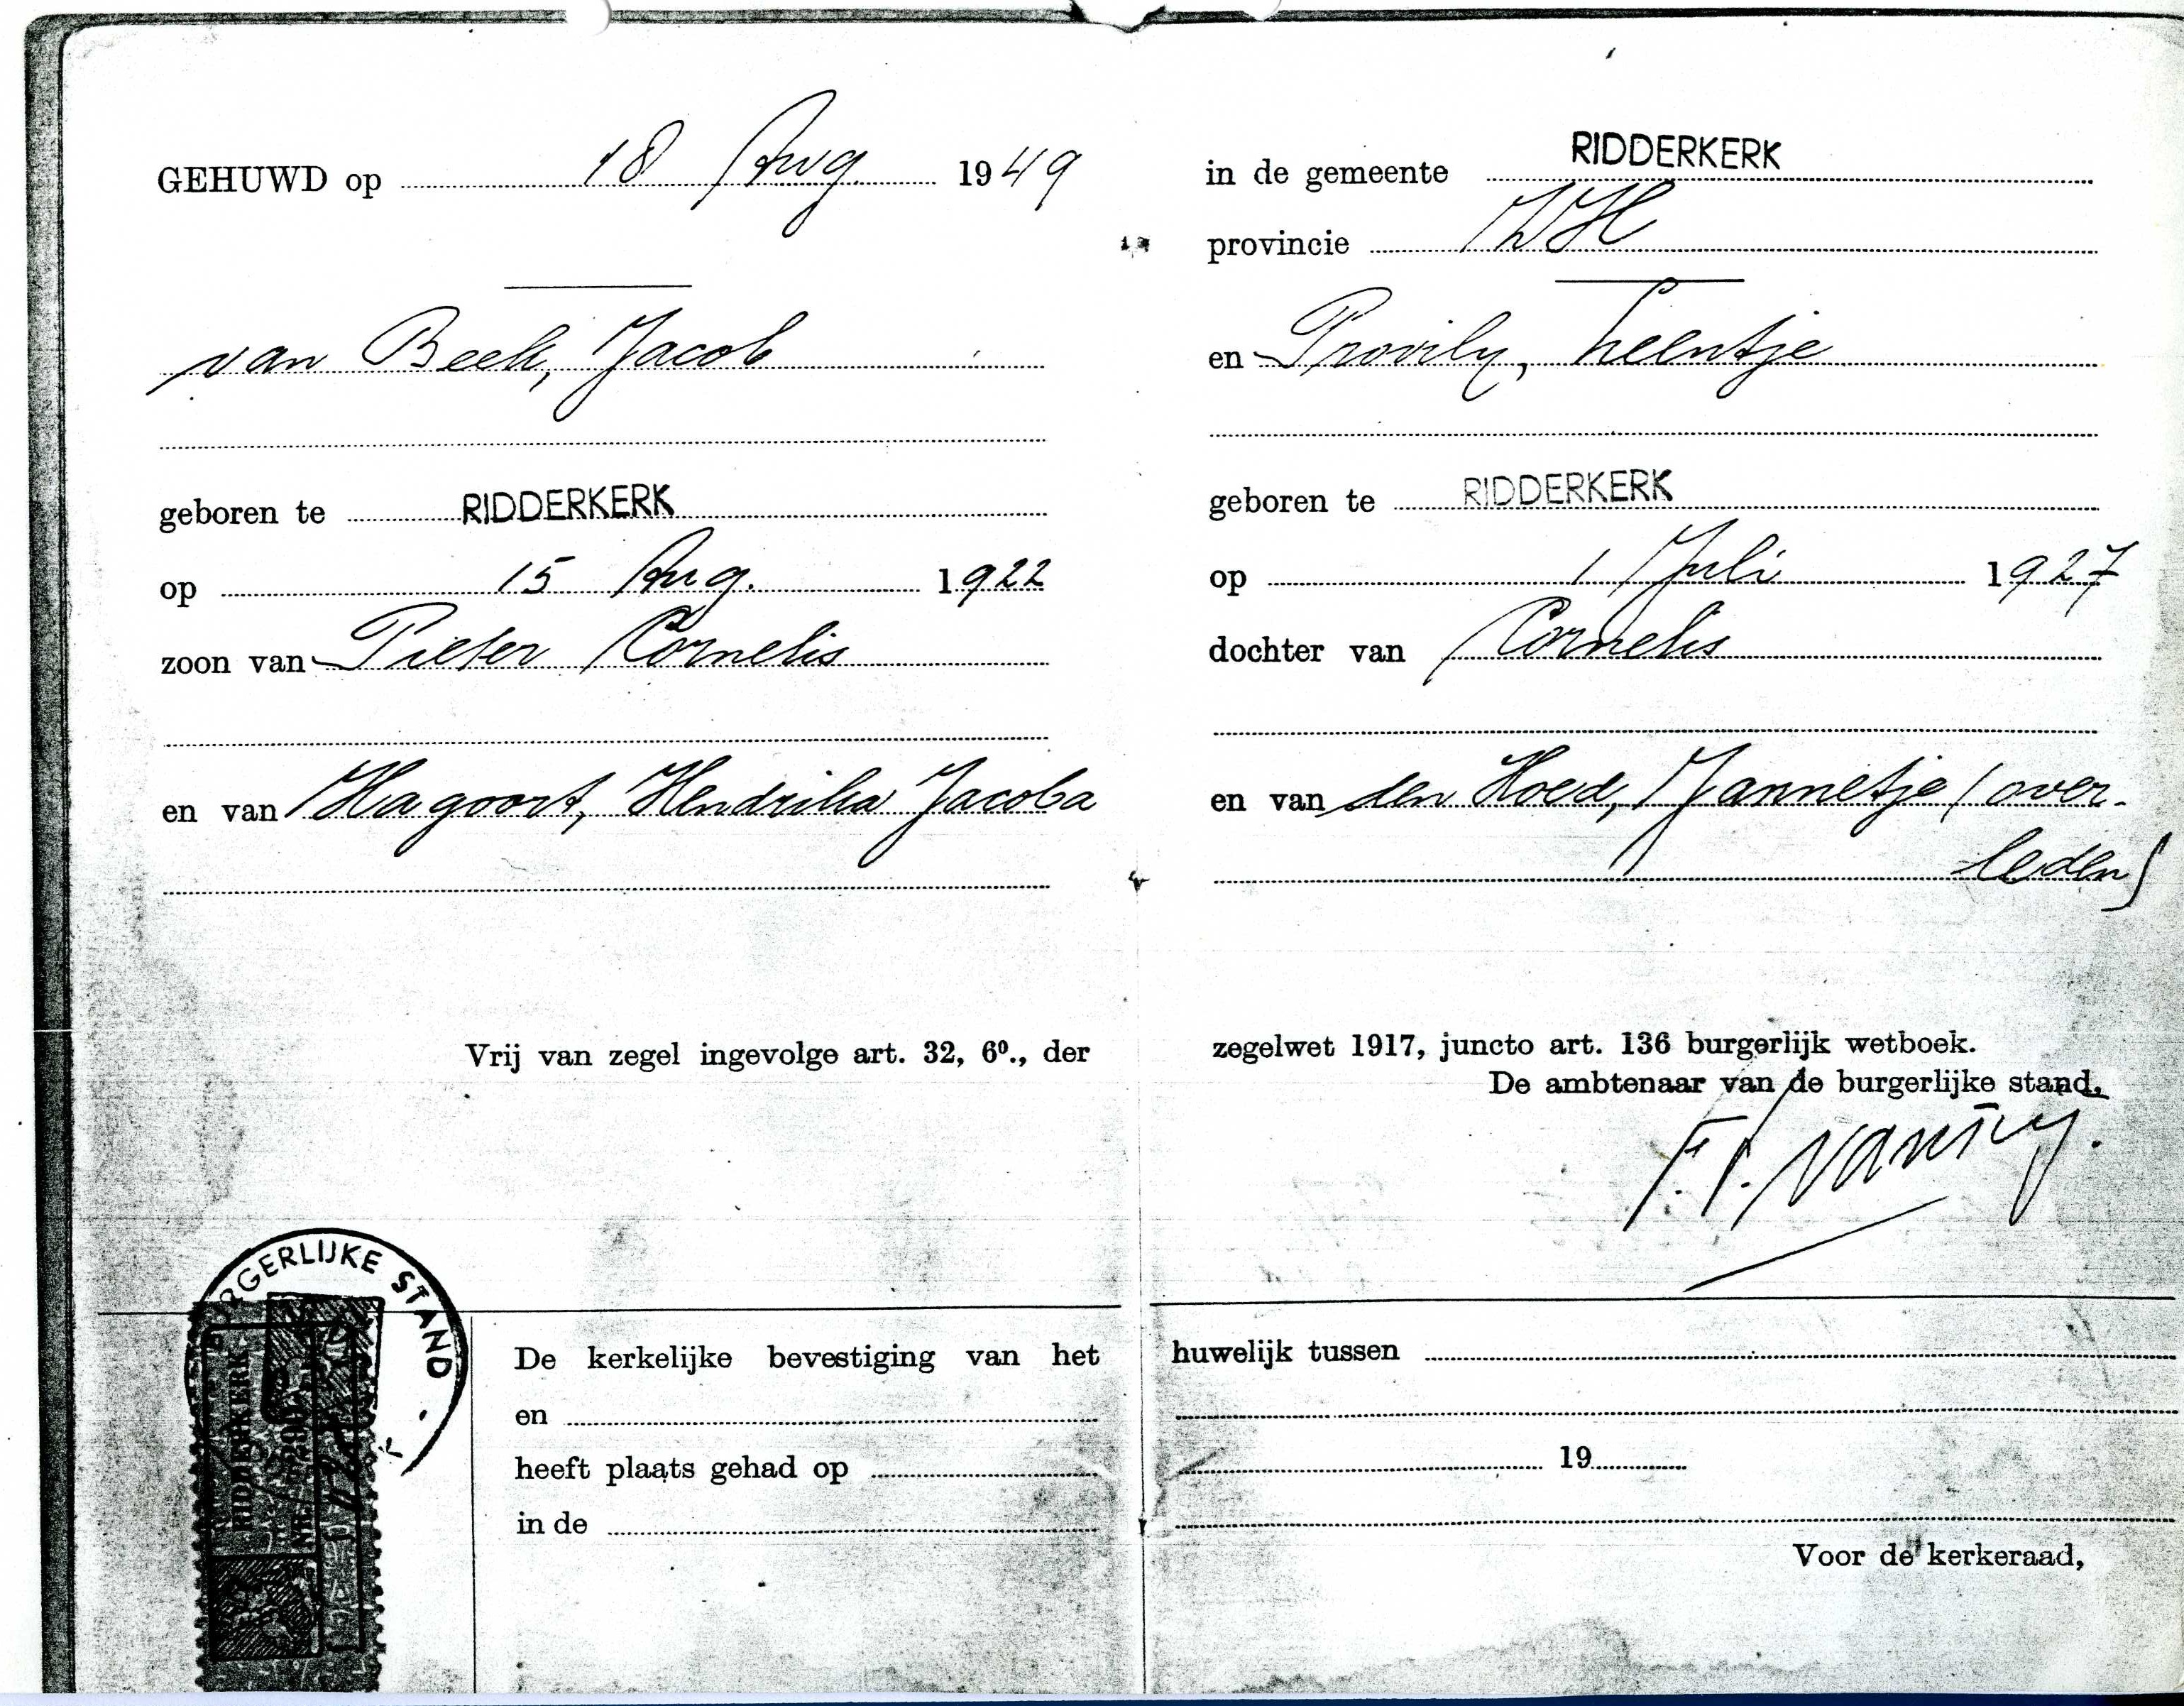 GEHUWD op 18 Aug 1949
van Beek, Jacob
geboren te RIDDERKERK
op 15 Aug. 1922
zoon van Pieter Cornelis
en van Hagoort, Hendrika Jacoba
in de gemeente RIDDERKERK
provincie ZH
en Provily, Leentje
geboren te RIDDERKERK
op 1 Juli 1927
dochter van Cornelis
en van den Hoed, Jannetje (over-
leden)
Vrij van zegel ingevolge art. 32, 6º., der zegelwet 1917, juncto art. 136 burgerlijk wetboek.
De ambtenaar van de burgerlijke stand,
RGERLIJKE STAND
RIDDERKERK
De kerkelijke bevestiging van het huwelijk tussen
en
heeft plaats gehad op 19
in de
Voor de kerkeraad,